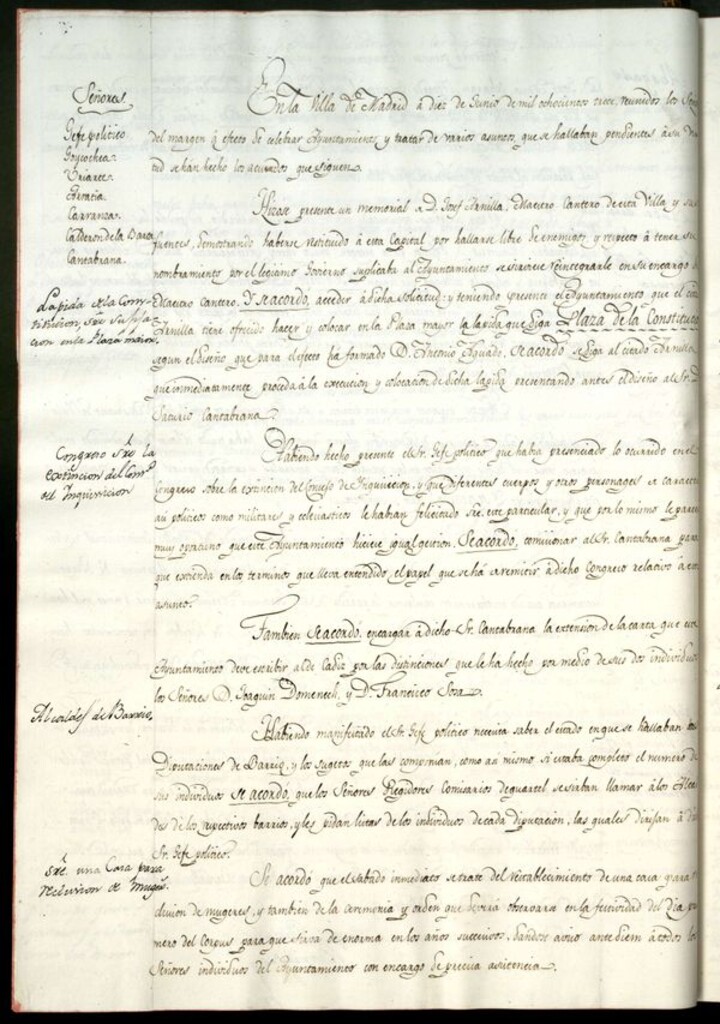 Señores
Gefe politico
Goycochea
Uriarte
Arratia
Carranza
Calderon de la Barca
Cantabrana.
En la Villa de Madrid á diez de Junio de mil ochocientos trece, reunidos los
del margen á efecto de celebrar Ayuntamiento, y tratar de varios asuntos, que se hallaban pendientes á su
tud se han hecho los acuerdos que siguen.
Lapida de la Cons-
titucion, sre su fixa-
cion en la Plaza maior,
Hizose presente un memorial de D. Josef Arnilla, Maestro Cantero de esta Villa y sus
fuentes, demostrando haberse restituido á esta Capital por hallarse libre de enemigos, y respecto á tener su
nombramiento por el legitimo Govierno suplicaba al Ayuntamiento se sirviese reintegrarle en su encargo de
Maestro Cantero. Y se acordo, acceder á dicha solicitud: y teniendo presente el Ayuntamiento que el
Arnilla tiene ofrecido hacer y colocar en la Plaza mayor la lapida que diga Plaza de la Constitucion
segun el diseño que para el efecto ha formado D. Antonio Aguado, se acordo se diga al citado Arnilla
que inmediatamente proceda á la execucion y colocacion de dicha lapida presentando antes el diseño al Sr. D.
Saturio Cantabrana.
Congreso sre la
extincion del Consº
de Inquisicion
Habiendo hecho presente el Sr. Gefe politico que habia presenciado lo ocurrido en el
Congreso sobre la extincion del Consejo de Inquisicion, y que diferentes cuerpos y otros personages de caracter
asi politicos como militares y eclesiasticos le habian felicitado sre. este particular, y que por lo mismo le parecia
muy oportuno que este Ayuntamiento hiciese igual gestion. Se acordo, comisionar al Sr. Cantabrana para
que extienda en los terminos que lleva entendido, el papel que se há de remitir á dicho Congreso relativo á este
asunto.
Tambien se acordó, encargar á dicho Sr. Cantabrana la extension de la carta que este
Ayuntamiento deve escribir al de Cadiz por las distinciones que le ha hecho por medio de sus dos individuos
los Señores D. Joaquin Domenech, y D. Francisco Sosa.
Alcaldes de Barrio,
Habiendo manifestado el Sr. Gefe politico necesita saber el estado en que se hallaban las
Diputaciones de Barrio, y los sugetos que las componian, como asi mismo si estaba completo el numero de
sus individuos se acordo, que los Señores Regidores Comisarios de quartel se sirban llamar á los Alcal
des de los respectivos barrios, y les pidan listas de los individuos de cada diputacion, las quales dirijan á
Sr. Gefe politico.
sre. una Casa para
reclusion de mugs.
Se acordó que el sabado inmediato se trate del restablecimiento de una casa para
clusion de mugeres, y tambien de la ceremonia y orden que deverá observarse en la festividad del Dia
mero del Corpus para que sirva de norma en los años sucesivos, dandose aviso ante diem á todos los
Señores individuos del Ayuntamiento con encargo de precisa asistencia.